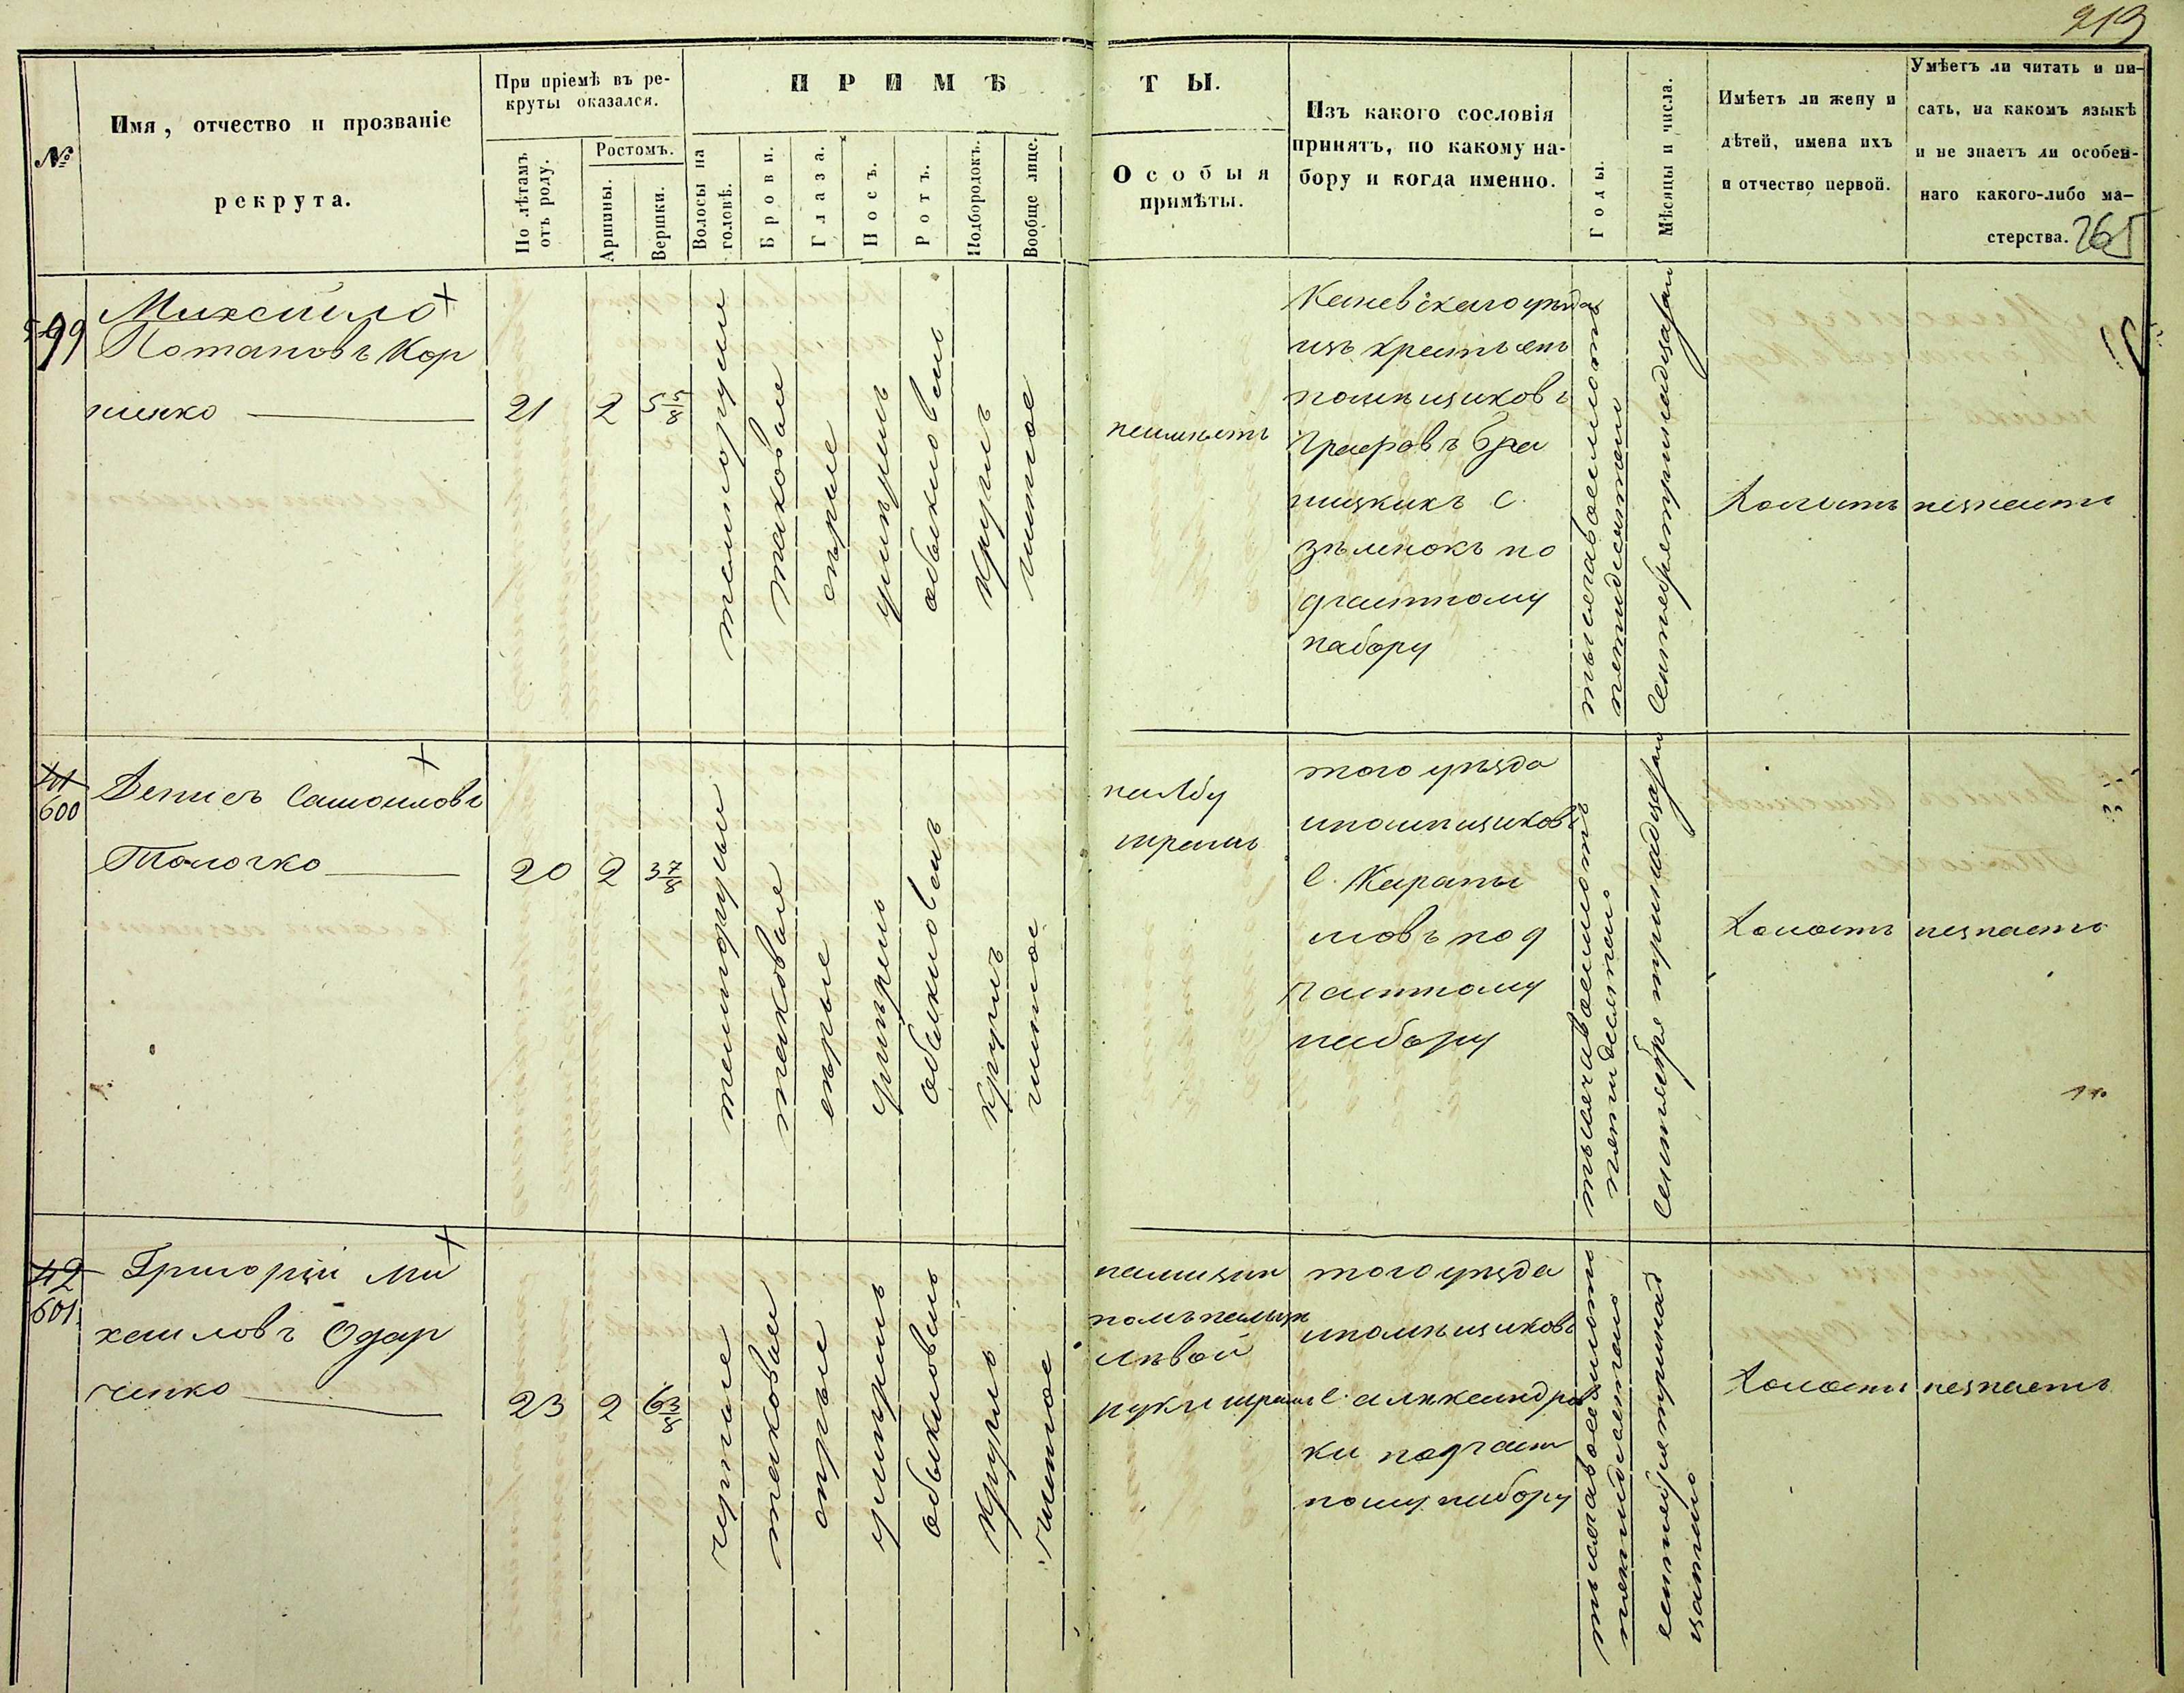 219
№
Имя, отчество и прозваніе
рекрута.
При пріемѣ въ ре-
круты оказался.
По лѣтамъ
отъ роду.
Ростомъ.
Аршины.
Вершки.
ПРИМѢ
ТЫ.
Волосы на
головѣ.
Брови.
Глаза.
Носъ.
Ротъ.
Подбородокъ.
Вообще лице.
Особыя
примѣты.
Изъ какого сословія
принятъ, по какому на-
бору и когда именно.
Годы.
Мѣсяцы и числа.
Имѣетъ ли жену и
дѣтей, имена ихъ
и отчество первой.
Умѣетъ ли читать и пи-
сать, на какомъ языкѣ
и не знаетъ ли особен-
наго какого-либо ма-
стерства.
265
599
Михайло
Потаповъ Кор
ніенко
21
2
5 5/8
темнорусые
таковые
сѣрые
умѣренъ
обыкновенъ
круглъ
чистое
неимѣетъ
Каневскаго уѣзда
изъ крестьянъ
помѣщиковъ
Графовъ Бра
ницкихъ С.
Зѣленокъ по
9 частному
набору
тысяча восемьсотъ
пятидесятого
Сентября тринадцатаго
Холостъ
незнаетъ
41
600
Денисъ Самоиловъ
Толочко
20
2
3 7/8
темнорусые
таковые
сѣрые
умѣренъ
обыкновенъ
круглъ
чистое
на лбу
шрамъ
того уѣзда
ипомѣщиковъ
С. Карапы
шовъ по 9
частному
набору
тысяча восемьсотъ
пятидесятого
Сентября тринадцатаго
Холостъ
незнаетъ
42
601
Григорій Ми
хайловъ Одар
ченко
23
2
6 3/8
черные
таковые
сѣрые
умѣренъ
обыкновенъ
круглъ
чистое
на мизин
номъ пальцѣ
лѣвой
руки шрамъ
того уѣзда
ипомѣщиковъ
С. Александров
ки по 9 част
ному набору
тысяча восемьсотъ
пятидесятого
сентября тринад
цатого
Холостъ
незнаетъ